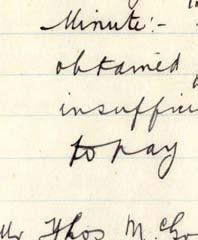 Minute:-
obtained
insuffici
to pay
Mr Thos M. Co